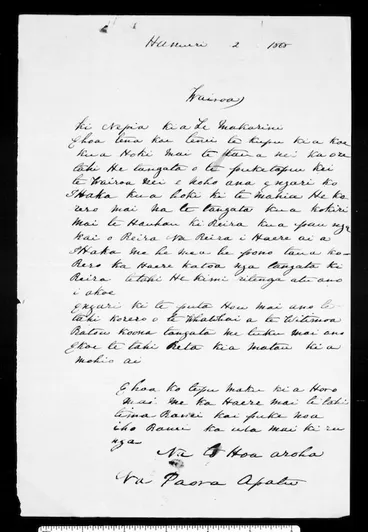 Hanueri 2 186
Wairoa
ki Nepia kia Te Makarini
Ehoa tena koe tenei te kupu kia koe
kua Hoki mai te taua nei ka ora
tahi He tangata o te puketapu kei
te Wairoa nei e noho ana engari ko
IHaka kua hoki ki te mahia He ko
rero mai na te tangata kua kokiri
mai te Hauhau ki Reira kua pau nga
kai o Reira Na Reira i Haere ai a
IHaka me he mea he pono taua ko
Rero ka Haere katoa nga tangata ki
Reira tatahi He kimi ritenga atu ano
i akoe
engari ki te puta Hou mai ano te
tahi korero o te Whatihai a te Witinoa
Ratou koona tangata me tuku mai ano
Ekoe te tahi Reta kia Matou kia
mohio ai
Ehoa ko tepu maku kia Horo
mai me ka Haere mai te tahi
tima Rawei kai puke noa
iho Raue ka uta mai ki ru
nga
Na to Hoa aroha
Na Paora Apatu